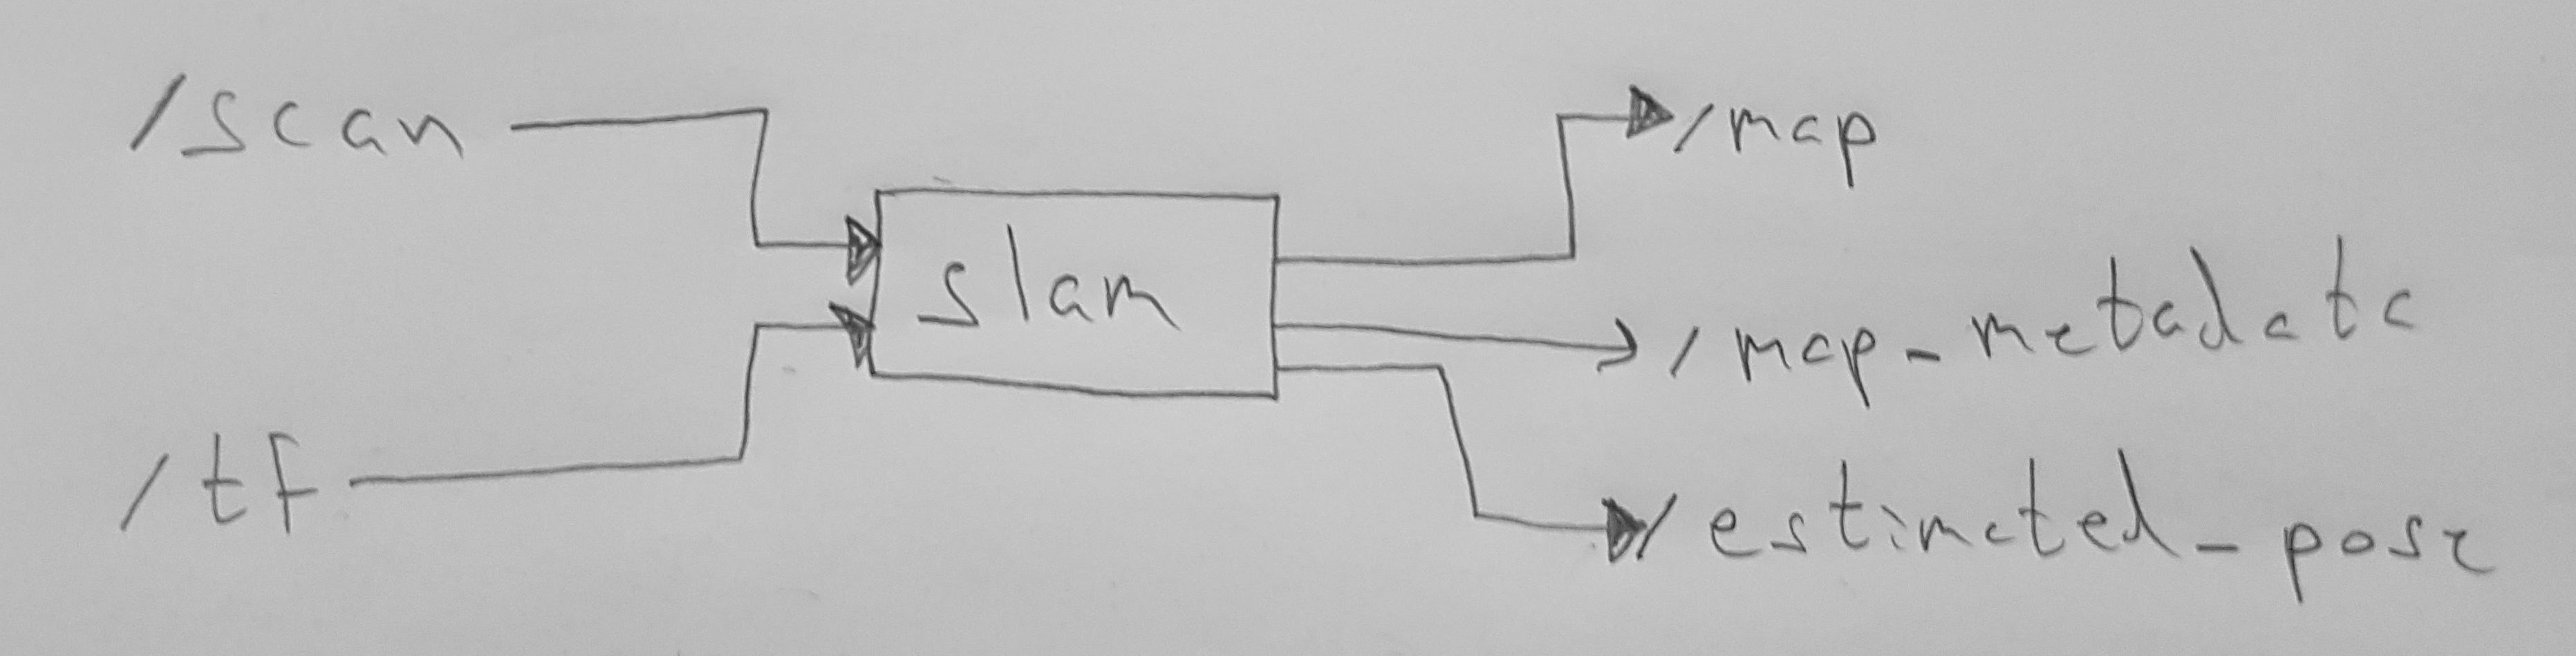 /scan
/tf
slam
/map
/map_metadata
/estimated_pose